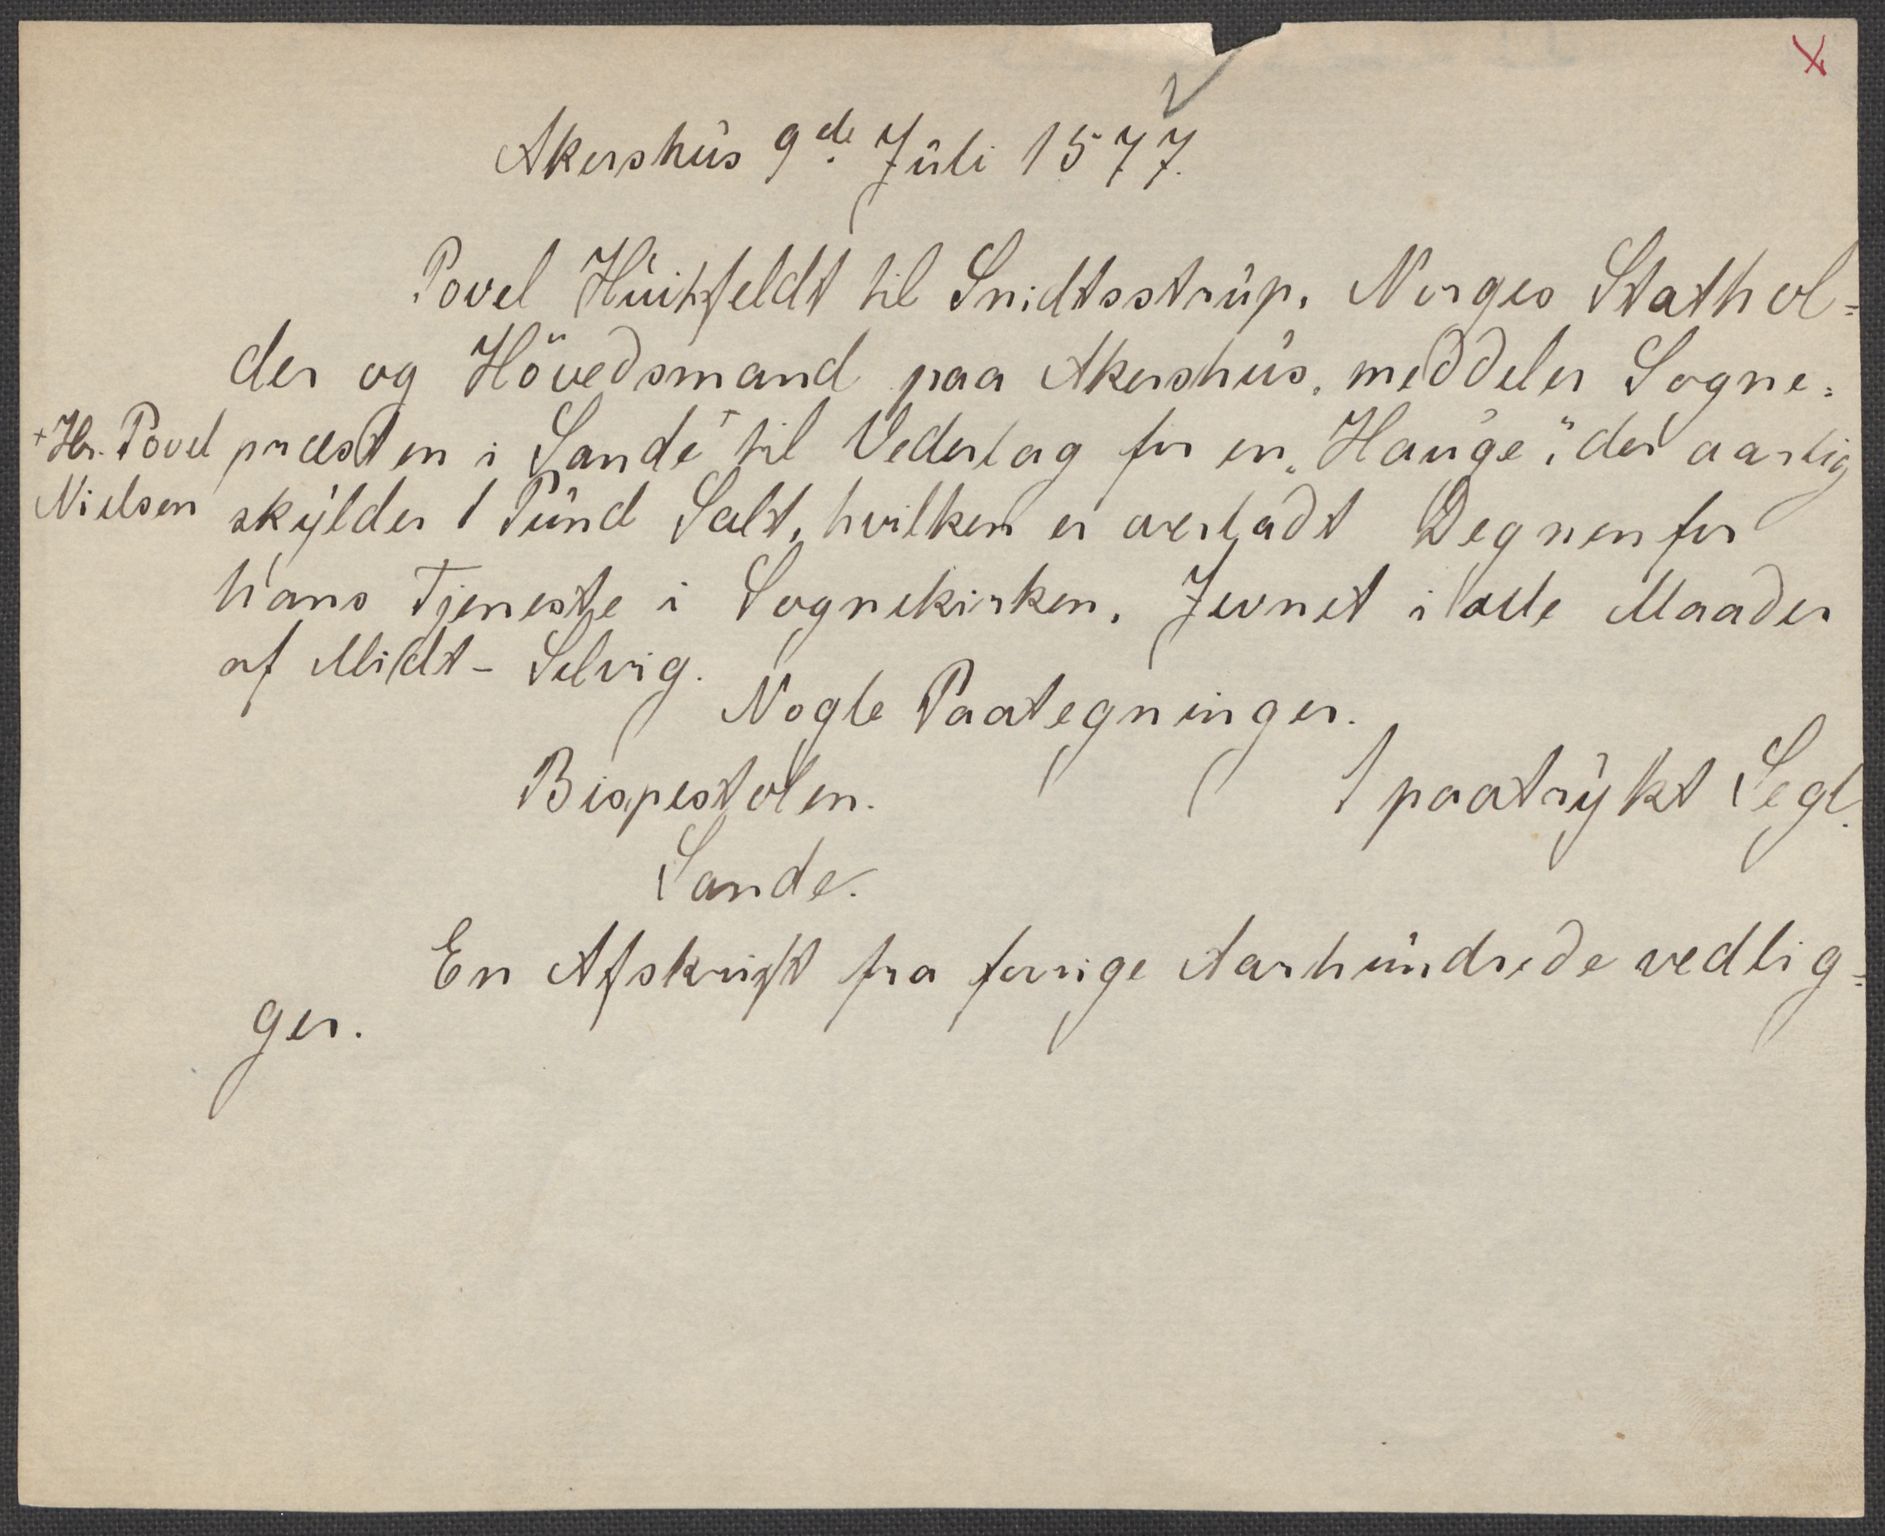 Akershus 9de Juli 1577.
Povel Huitfeldt til Snidtsstrup, Norges Stathol=
der og Hövedsmand paa Akershus, meddeler Sogne=
+ Hr. Povel Nielsen
præsten i Sande + til Vederlag for en „Hauge”, der aarlig
skylder 1 Pund Salt, hvilken er overladt Degnen for
hans Tjeneste i Sognekirken, Jevnet i alle Maader
af Midt-Selvig.
Nogle Paategninger.
Bispestolen. 1 paatrykt Segl.
Sande.
En Afskrift fra forrige Aarhundrede vedlig=
ger.